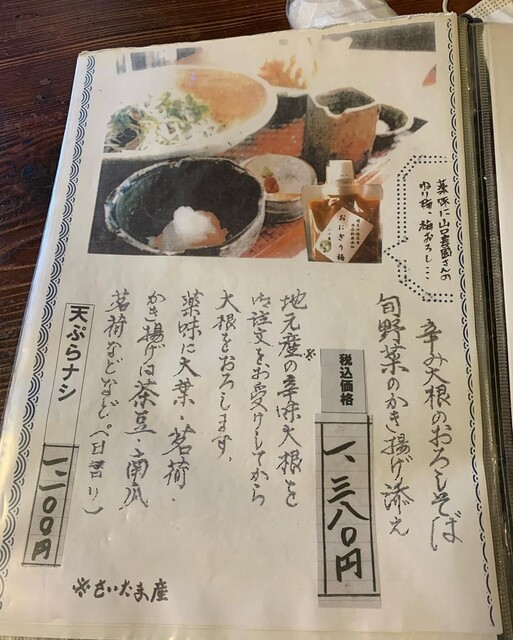 薬味に山口農園さんの
ねり梅、梅おろし…
おにぎり梅
辛み大根のおろしそば
旬野菜のかき揚げ添え
税込価格
一、三八〇円
※
地元産の辛味大根を
御注文をお受けしてから
大根をおろします。
薬味に大葉・茗荷・
かき揚げは茶豆・南瓜
茗荷などなど(日替り)
天ぷらナシ
一、一〇〇円
※さいたま産